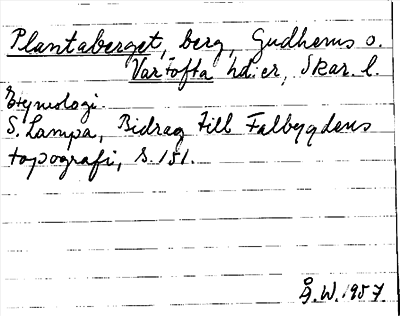 Plantaberget, berg, Gudhems o.
Vartofta hd:er, Skar. l.
Etymologi.
S. Lampa, Bidrag till Falbygdens
topografi, s. 151.
Å.W. 1957.